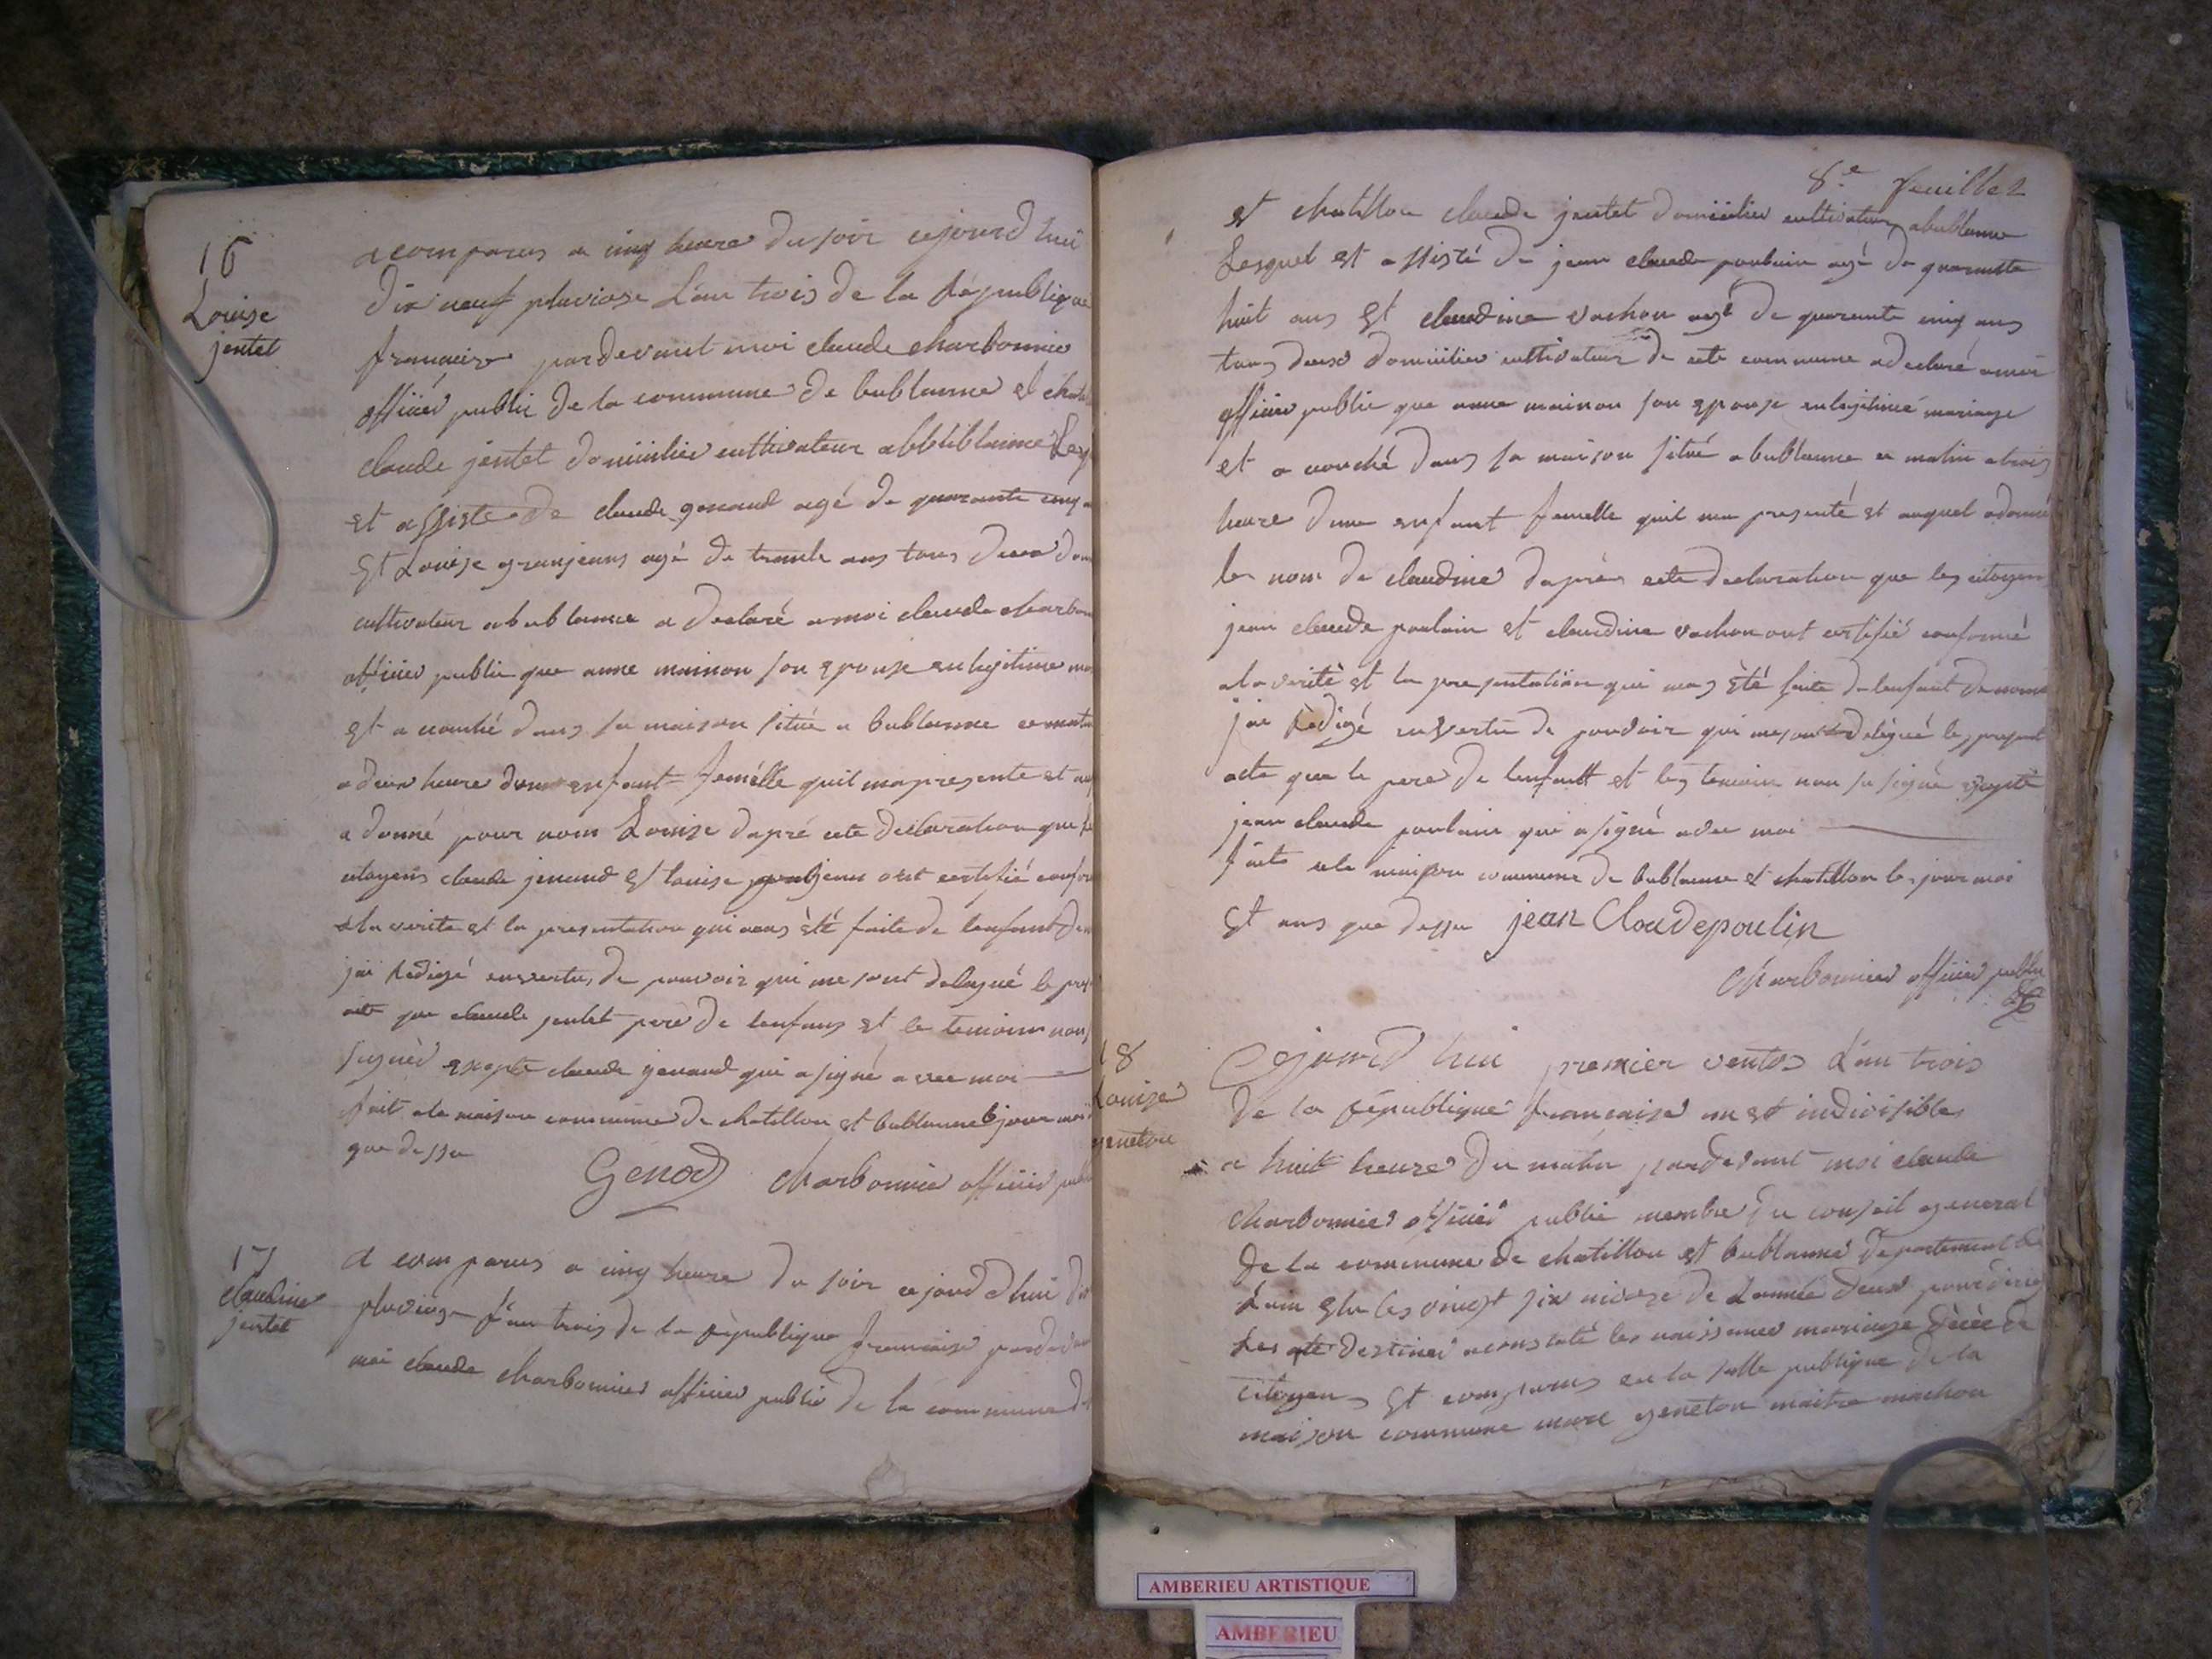 16
Louise
jentet
a comparus a cinq heure du soir cejourd huï
dix neuf pluviose L'an trois de la République
francaise pardevant moi claude charbonnier
officier public de la commune de bublanne et chati
claude jentet domicilier cultivateur abbliblanne Lesq
est assisté de claude genaud agé de quarante cinq a
Et Louise granjeans agé de trante ans tous deux dom
cultivateur a bublanne a declaré a moi claude charbon
officier public que anne mainon son epouse en legitime ma
est a couché dans sa maison situé a bublanne ce matin
a deux heure dune enfant femelle quil ma presente et au
a donné pour nom Louise dapré cete declaration que le
citoyens claude jenaud Et louise granjeans ont certifié confor
a la verite et la presentation qui mas été faite de lenfant de
jai Redigé en vertu de pouvoir qui me sont delegué le pres
acte que claude jentet pere de lenfans et le temoins non
signèr exepte claude genaud qui a signé avec moi
fait a la maison commune de chatillon et bublanne le jour moi
que dessu
Genod charbonnier officier public
17
claudine
jentet
A comparus a cinq heure du soir cejourd dhui dix
pluviose L'an trois de la République francaise pardevan
moi claude charbonnier officier public de la commune d
8.e feuillet
et chatillon claude jentet domicilier cultivateur a bublanne
Lesquel est assisté de jean claude poulain agé de quarante
huit ans Et claudine vachon agé de quarante cinq ans
tous deux domicilier cultivateur de cete commune a declaré a moi
officier public que anne mainon son epouse en legitime mariage
est a couché dans sa maison situé a bublanne ce matin a trois
heure dune enfant femelle quil ma presenté et auquel a donné
les nom de claudine daprès cete declaration que les citoyen
jean claude poulain et claudine vachon ont certifié conforme
a la verité et la presentation qui mas été faite de lenfant denomé
jai Redigé en vertu de pouvoir qui me sont delegué les present
acte que le pere de lenfant et les temoin non su signé exepté
jean claude poulain qui a signé avec moi
faite a la maison commune de bublanne et chatillon les jour moi
Et ans que dessu jean Cloudepoulin
Charbonnier officier public
18
Louise
geneton
Cejourd hui premier ventos L'an trois
de la République francaise un est indivisibles
a huit heure du matin pardevant moi claude
charbonnier officier public membre du conseil general
de la commune de chatillon est bublanne departement de
Lain elu les vingt six nivose de Lannée deux pour dresé
les acte destiner a constaté les naissance mariage décè de
citoyens Et comparus en la salle publique de la
maison commune marc geneton maitre machon
AMBERIEU ARTISTIQUE
AMBERIEU